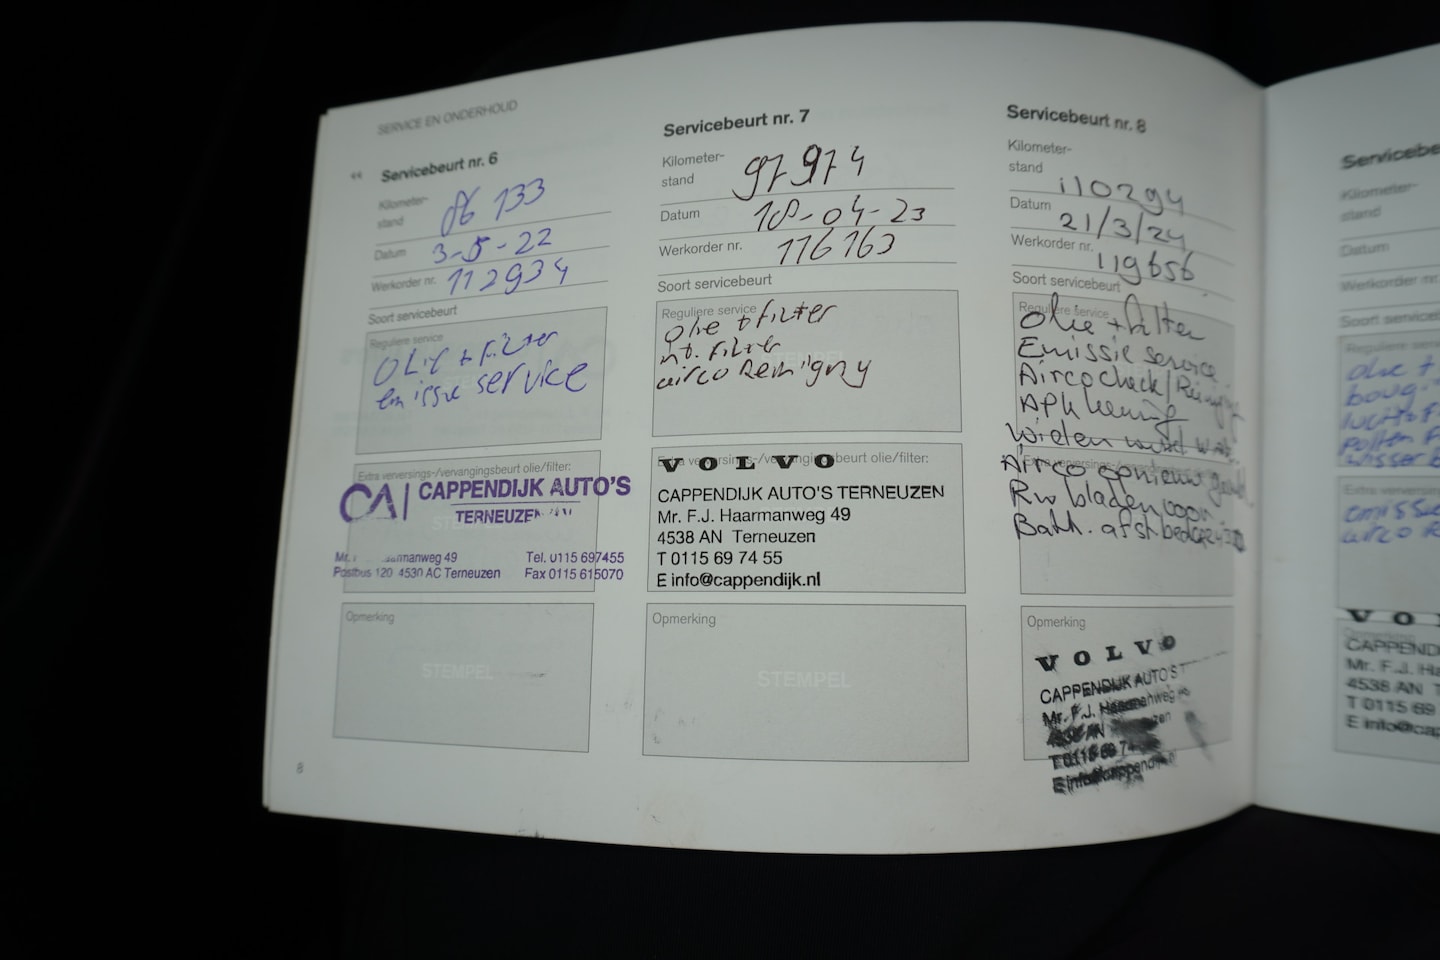 SERVICE EN ONDERHOUD
Servicebeurt nr. 6
Kilometer-
stand
86 133
Datum 3-5-22
Werkorder nr. 112934
Soort servicebeurt
Reguliere service
Olie + filter
emissie service
Extra verversings-/vervangingsbeurt olie/filter:
CA CAPPENDIJK AUTO'S
TERNEUZEN
Mr. Haarmanweg 49 Tel. 0115 697455
Postbus 120 4530 AC Terneuzen Fax 0115 615070
Opmerking
STEMPEL
8
Servicebeurt nr. 7
Kilometer-
stand
97974
Datum 18-04-23
Werkorder nr. 116163
Soort servicebeurt
Reguliere service
Olie + filter
int. filter
airco Reiniging
STEMPEL
Extra verversings-/vervangingsbeurt olie/filter:
VOLVO
CAPPENDIJK AUTO'S TERNEUZEN
Mr. F.J. Haarmanweg 49
4538 AN Terneuzen
T 0115 69 74 55
E info@cappendijk.nl
Opmerking
STEMPEL
Servicebeurt nr. 8
Kilometer-
stand
110294
Datum 21/3/24
Werkorder nr. 119656
Soort servicebeurt
Reguliere service
Olie + filter
Emissie service
Aircocheck/Reiniging
APK keuring
Wielen
Airco opnieuw
Rw bladen voor
Batt. afst.bed
Opmerking
VOLVO
CAPPENDIJK AUTO'S T
Mr. F.J. Haarmanweg
4538 AN
T 0115 69 74
E info@cappendijk.n
Servicebe
Kilometer-
stand
Datum
Werkorder nr.
Soort service
Reguliere serv
Olie +
boug
Extra ververs
emissi
airco R
VO
CAPPEND
Mr. F.J. Ha
4538 AN
T 0115 69
E info@cap